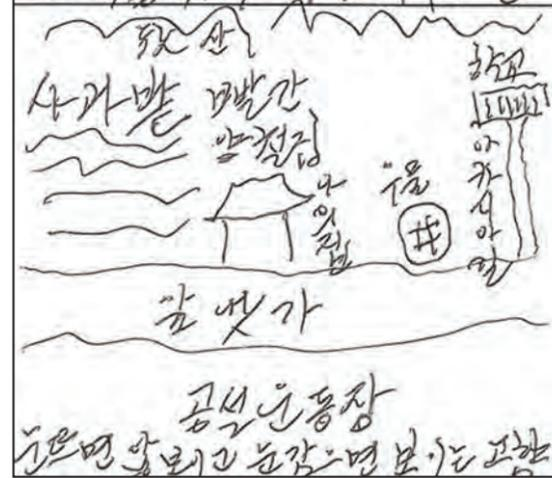 뒷산
학교
사과밭
빨간
양철집
나의집
우물
아카시아길
앞 냇가
공설운동장
눈뜨면 안보이고 눈감으면 보이는 고향